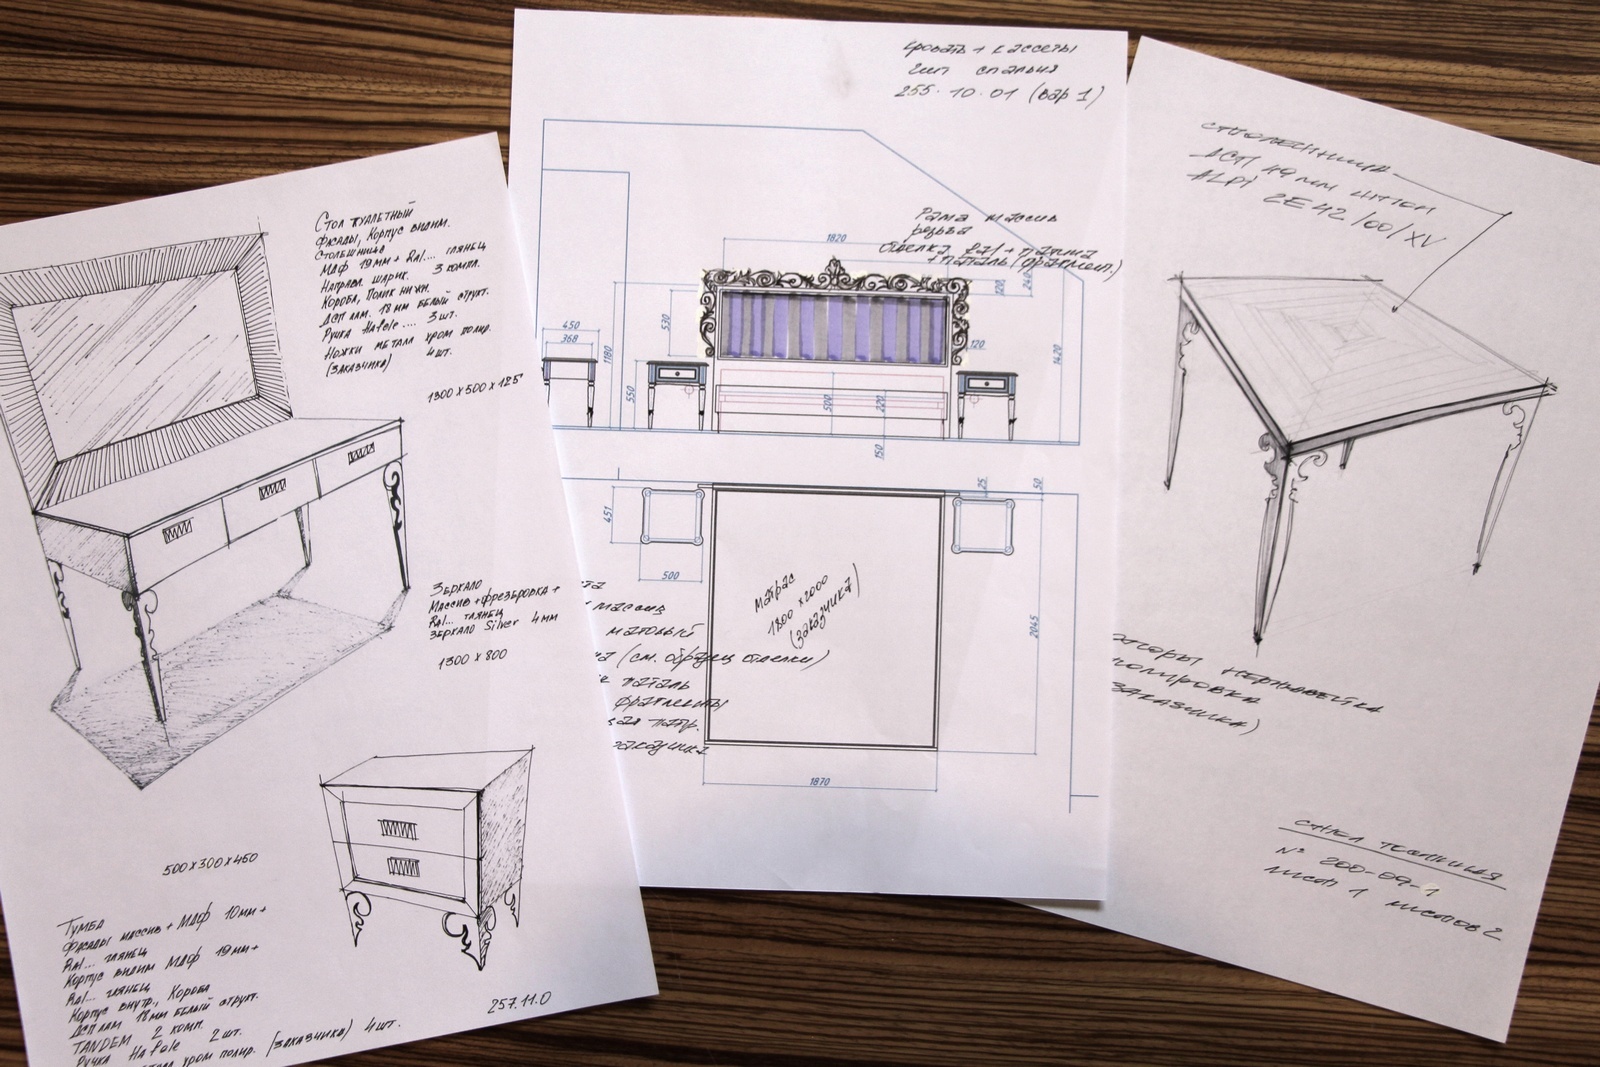 Стол туалетный
Фасады, Корпус видим.
Столешница
МДФ 19мм + Ral... глянец
Направл. шарик. 3 компл.
Короба, Полик нижн.
ДСП лам. 18мм белый структ.
Ручка Hafele ... 3 шт.
Ножки металл хром полир.
(заказчика) 4 шт.
1300 x 500 x 125
Зеркало
Массив + фрезеровка +
Ral... глянец
Зеркало Silver 4мм
1300 x 800
500 x 300 x 450
Тумба
Фасады массив + МДФ 10мм +
Ral... глянец
Корпус видим МДФ 19мм +
Ral... глянец
Корпус внутр., Короба
ДСП лам 18мм белый структ.
TANDEM 2 компл.
Ручка Hafele 2 шт.
хром полир. (заказчика) 4 шт.
257.11.0
Кровать + кассеты
спальня
255.10.01 (вар 1)
Рама массив
резьба
отделка + патина
+ поталь (фрагмент.)
1820
120
240
450
368
530
1180
550
120
1420
500
220
150
25
50
451
500
матрас
1800 x 2000
(заказчика)
массив
матовый
(см. образец отделки)
поталь
фрагменты
заказчика
2045
1870
столешница
ДСП 49мм шпон
ALPI 2E42/00/XV
опоры нержавейка
полировка
заказчика)
стол
№ 200-09-1
лист 1 листов 2